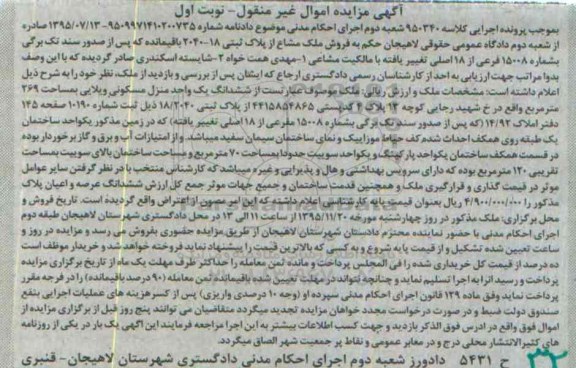 آگهی مزایده اموال غیر منقول- نوبت اول
بموجب پرونده اجرایی کلاسه ۹۵۰۳۴۰ شعبه دوم اجرای احکام مدنی موضوع دادنامه شماره ۹۵۰۹۹۷۱۴۱۰۲۰۰۷۳۵-۱۳۹۵/۰۷/۱۳ صادره
از شعبه دوم دادگاه عمومی حقوقی لاهیجان حکم به فروش ملک مشاع از پلاک ثبتی ۱۸-۲۰۴۰ باقیمانده که پس از صدور سند تک برگی
بشماره ۱۵۰۰۸ فرعی از ۱۸ اصلی تغییر یافته با مالکیت مشاعی ۱-مهدی همت خواه ۲-شایسته اسکندری صادر گردیده که با این وصف
بدوا مراتب جهت ارزیابی به احد از کارشناسان رسمی دادگستری ارجاع که ایشان پس از بررسی و بازدید از ملک، نظر خود را به شرح ذیل
اعلام داشته است: مشخصات ملک و ارزش ریالی: ملک موصوف عبارتست از ششدانگ یک واحد منزل مسکونی ویلایی بمساحت ۲۶۹
مترمربع واقع در خ شهید رجایی کوچه ۱۳ پلاک ۴ کدپستی ۴۴۱۵۸۵۴۸۶۵ از پلاک ثبتی ۱۸/۲۰۴۰ ذیل ثبت شماره ۱۰۱۹۰ صفحه ۱۴۵
دفتر املاک ۱۴/۹۲ (که پس از صدور سند تک برگی بشماره ۱۵۰۰۸ مفرعی از ۱۸ اصلی تغییر یافته) که در زمین مذکور یکواحد ساختمان
یک طبقه روی همکف احداث شده کف حیاط موزاییک و نمای ساختمان سیمان سفید میباشد. و از امتیازات آب و برق و گاز برخوردار بوده
در قسمت همکف ساختمان یکواحد پارکینگ و یکواحد سوییت حدودا بمساحت ۷۰ مترمربع و مساحت ساختمان بالای سوییت بمساحت
تقریبی ۱۲۰ مترمربع بوده که دارای سرویس بهداشتی و هال و پذیرایی و غیره میباشد که کارشناس منتخب با در نظر گرفتن سایر عوامل
موثر در قیمت گذاری و قرارگیری ملک و همچنین قدمت ساختمان و جمیع جهات موثر جمع کل ارزش ششدانگ عرصه و اعیان پلاک
مذکور را ۴/۹۰۰/۰۰۰/۰۰۰ ریال بعنوان قیمت پایه کارشناسی اعلام داشته که این امر مصون از اعتراض واقع گردیده است. تاریخ فروش و
محل برگزاری: ملک مذکور در روز چهارشنبه مورخه ۱۳۹۵/۱۱/۲۰ از ساعت ۱۱ الی ۱۲ در محل دادگستری شهرستان لاهیجان طبقه دوم
اجرای احکام مدنی با حضور نماینده محترم دادستان شهرستان لاهیجان از طریق مزایده حضوری بفروش می رسد و مزایده در روز و
ساعت تعیین شده تشکیل و از قیمت پایه شروع و به کسی که بالاترین قیمت را پیشنهاد نماید فروخته خواهد شد و خریدار موظف است
ده درصد از قیمت کل خریداری شده را فی المجلس پرداخت و مانده ثمن معامله را حداکثر ظرف مهلت یک ماه از تاریخ برگزاری مزایده
پرداخت و رسید آنرا به اجرا تسلیم نماید و چنانچه نتواند در مهلت تعیین شده باقیمانده ثمن معامله (۹۰ درصد باقیمانده) را در فرجه مقرر
پرداخت نماید وفق ماده ۱۲۹ قانون اجرای احکام مدنی سپرده او (وجه ۱۰ درصدی واریزی) پس از کسر هزینه های عملیات اجرایی بنفع
صندوق دولت ضبط و در صورت درخواست مجدد خواهان مزایده تجدید میگردد متقاضیان می توانند پنج روز قبل از برگزاری مزایده از
اموال فوق واقع در ادرس فوق الذکر بازدید و جهت کسب اطلاعات بیشتر به این اجرا مراجعه فرمایند این آگهی یک بار در یکی از روزنامه
های کثیرالانتشار محلی درج و در معابر عمومی و نقاط پر جمعیت شهر الصاق میگردد.
ح ۵۴۳۱ دادورز شعبه دوم اجرای احکام مدنی دادگستری شهرستان لاهیجان- قنبری
۳۲